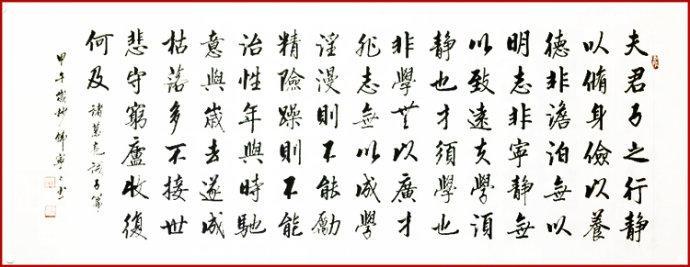 夫君子之行静
以脩身儉以養
德非澹泊無以
明志非寧静無
以致遠夫學須
静也才須學也
非學無以廣才
非志無以成學
淫漫則不能勵
精險躁則不能
治性年與時馳
意與歲去遂成
枯落多不接世
悲守窮廬將復
何及 諸葛亮誡子篇
甲午歲 書